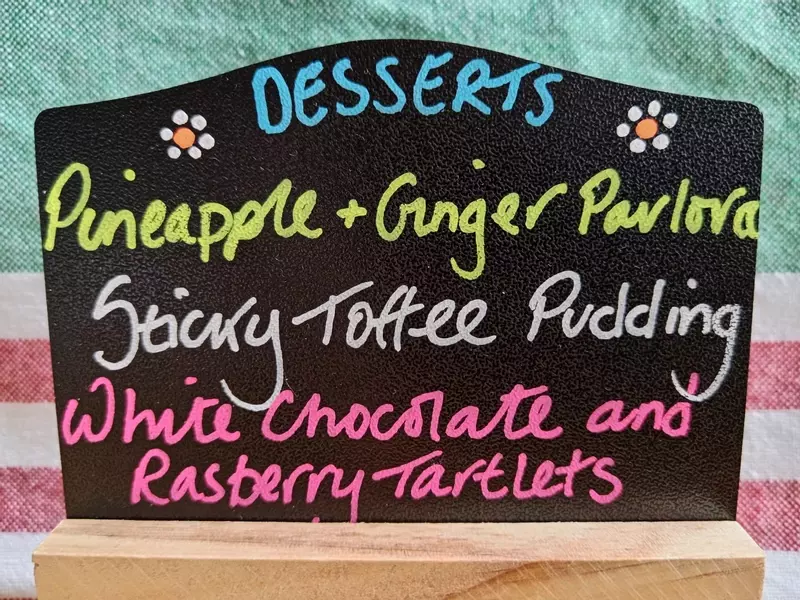 DESSERTS
Pineapple + Ginger Pavlova
Sticky Toffee Pudding
White Chocolate and
Rasberry Tartlets